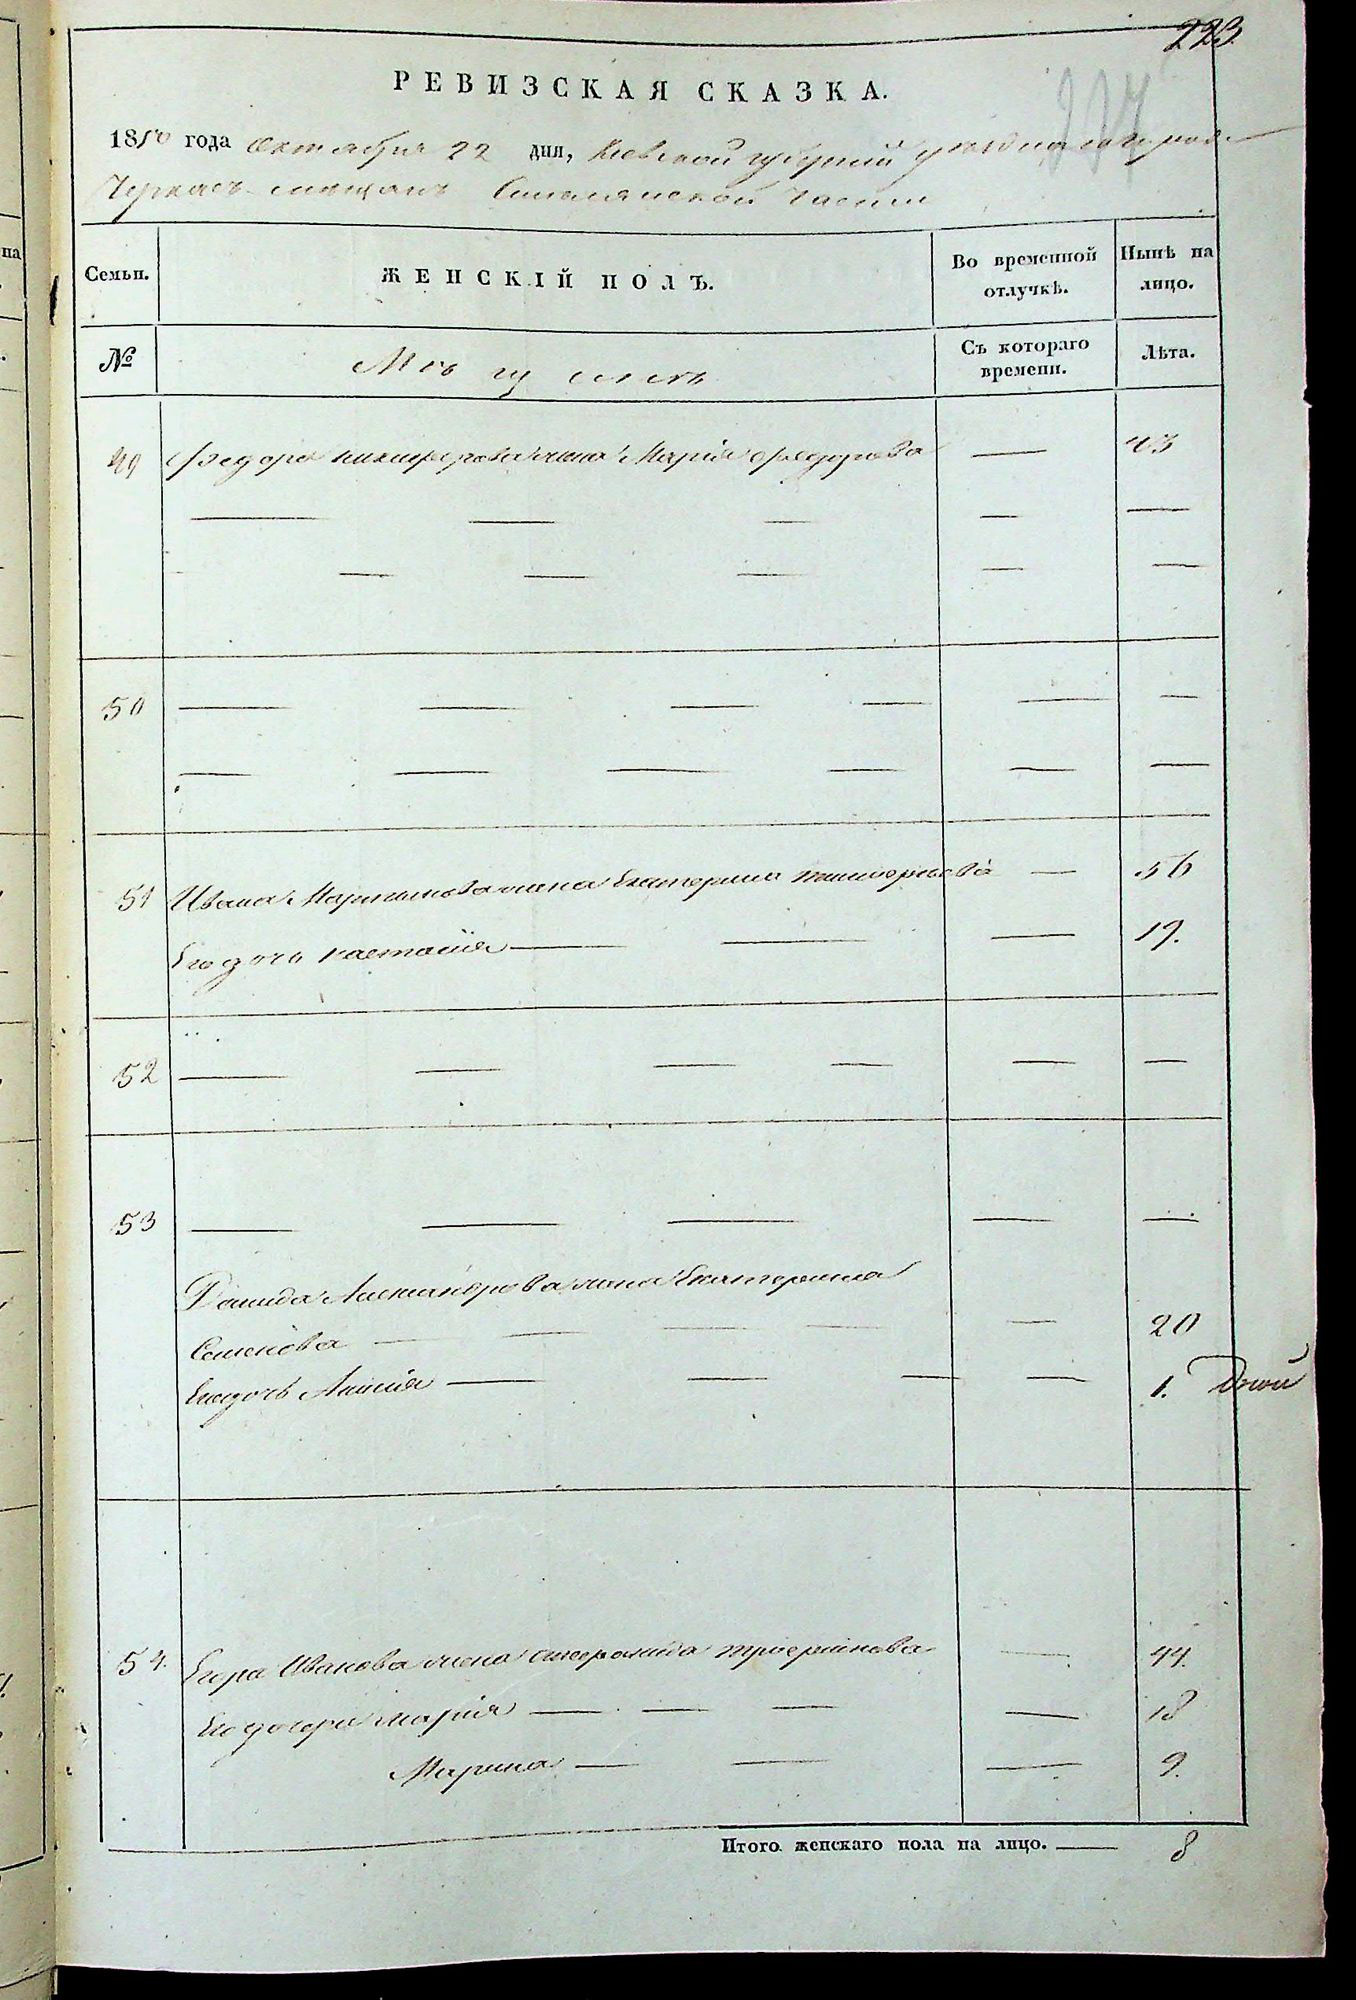 223
РЕВИЗСКАЯ СКАЗКА.
1850 года Октября 22 дня, Киевской губернии уезднаго города
Черкасъ мещанъ Смелянской части
Семьи. ЖЕНСКІЙ ПОЛЪ. Во временной отлучкѣ. Нынѣ на лицо.
№ Съ котораго времени. Лѣта.
49 Федора Никифорова жена Марія Федорова — 43
— — — — —
— — — — —
50 — — — — — —
— — — — — —
51 Ивана Мартынова жена Екатерина — 56
Его дочь Настасія — — — 19.
52 — — — — — —
53 — — — — —
Александрова жена Екатерина
Семенова — — — — — 20
Его дочь — — — — 1. дней
54. Егора Иванова жена — 44.
Его дочери Марія — — — — 18
Марина — — — 9.
Итого женскаго пола на лицо. — 8